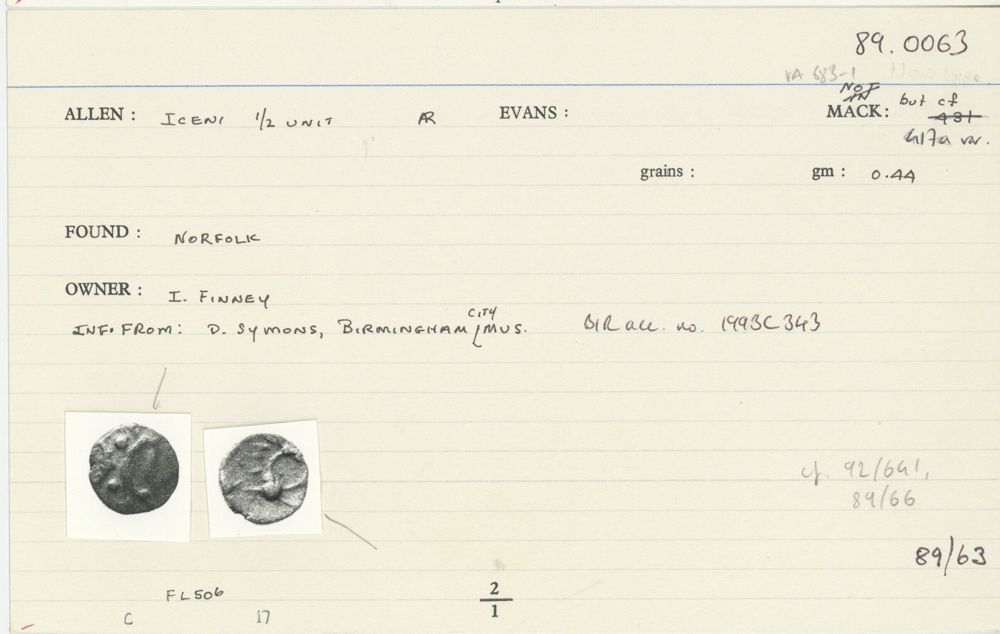 89.0063
VA 683-1
ALLEN : ICENI 1/2 UNIT AR EVANS : NOT IN MACK: but cf 431
417a var.
grains : gm : 0.44
FOUND : NORFOLK
OWNER : I. FINNEY
INF. FROM: D. SYMONS, BIRMINGHAM CITY MUS. BIR acc. no. 1993C343
cf. 92/641,
89/66
89/63
FL506
2
1
C 17